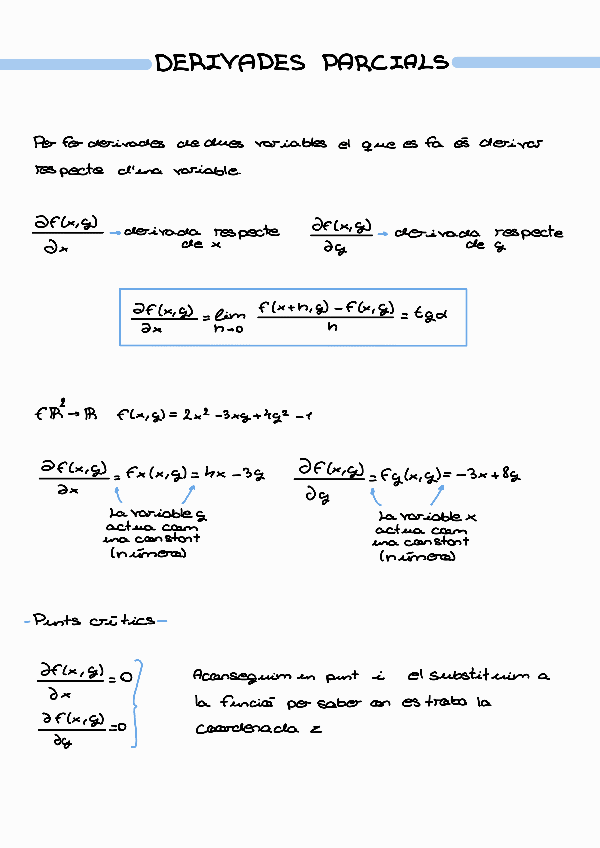 DERIVADES PARCIALS
Per fer derivades de dues variables el que es fa és derivar
respecte d'una variable.
∂f(x,y)/∂x → derivada respecte de x    ∂f(x,y)/∂y → derivada respecte de y
∂f(x,y)/∂x = lim h→0 f(x+h,y)-f(x,y)/h = tgα
f ℝ² → ℝ    f(x,y) = 2x² - 3xy + 4y² - 1
∂f(x,y)/∂x = fx(x,y) = 4x - 3y    ∂f(x,y)/∂y = fy(x,y) = -3x + 8y
La variable y
actua com
una constant
(número)
La variable x
actua com
una constant
(número)
- Punts crítics -
∂f(x,y)/∂x = 0
∂f(x,y)/∂y = 0
Aconseguim un punt i el substituim a
la funció per saber on es troba la
coordenada z